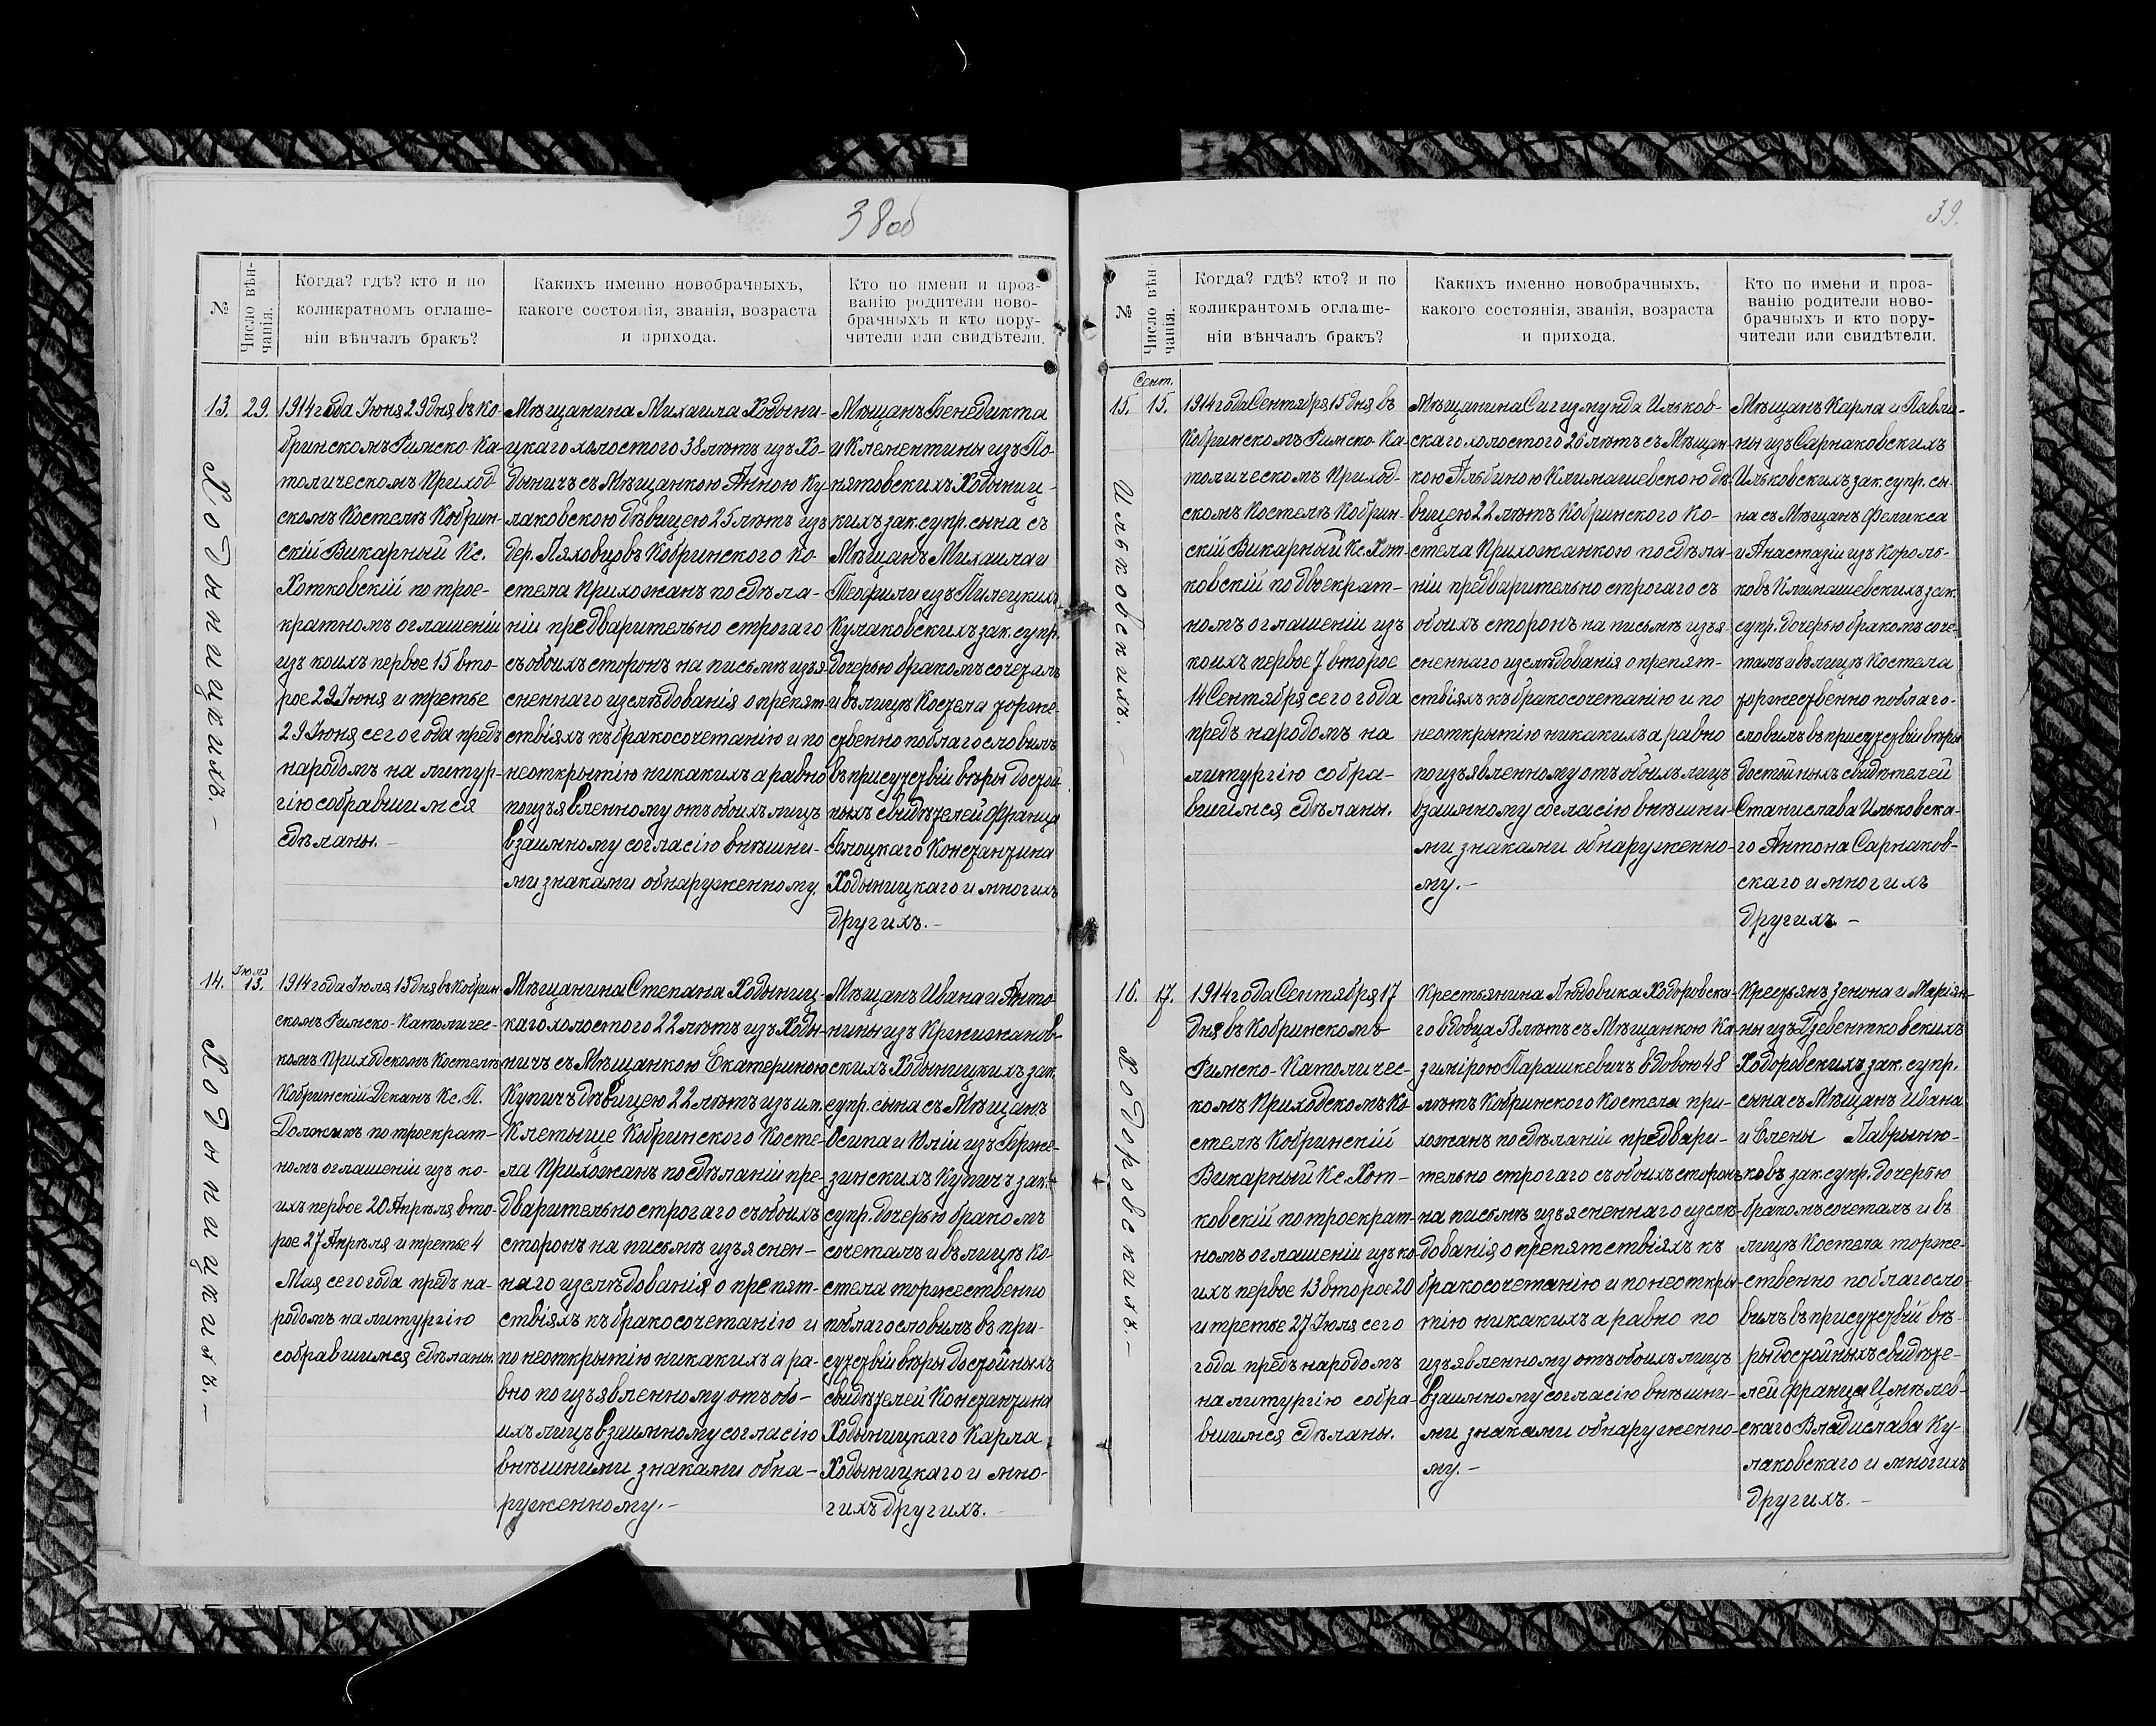 38об
№
Число вѣн-
чанія.
Когда? гдѣ? кто и по
коликратномъ оглаше-
ніи вѣнчалъ бракъ?
Какихъ именно новобрачныхъ,
какоге состоянія, званія, возраста
и прихода.
Кто по имени и проз-
ванію родители ново-
брачныхъ и кто пору-
чители или свидѣтели.
13.
29.
Ходыницкихъ. –
1914 года Іюня 29 дня въ Ко-
бринскомъ Римско-Ка-
толическомъ Приход-
скомъ Костелѣ Кобрин-
скій Викарный Кс.
Хотковскій по трое-
кратномъ оглашеніи
изъ коихъ первое 15 вто-
рое 22 Іюня и третье
29 Іюня сего года предъ
народомъ на литур-
гію собравшимся
сдѣланы. –
Мѣщанина Михаила Ходыни-
цкаго холостого 38 лѣтъ изъ Хо-
дыничъ съ Мѣщанкою Анною Ку-
лаковскою дѣвицею 25 лѣтъ изъ
дер. Ляховцовъ Кобринского Ко-
стела Прихожанъ по сдѣла-
ніи предварительно строгаго
съ обоихъ сторонъ на письмѣ изъя-
сненнаго изслѣдованія о препят-
ствіяхъ къ бракосочетанію и по
неоткрытію никакихъ а равно
по изъявленному отъ обоихъ лицъ
взаимному согласію внѣшни-
ми знаками обнаруженному.
Мѣщанъ Бенедикта
и Клементины изъ По-
нятовскихъ Ходыниц-
кихъ зак. супр. сына съ
Мѣщанъ Михаила и
Теофили изъ Пилецкихъ
Кулаковскихъ зак. супр.
дочерью бракомъ сочеталъ
и въ лицѣ Костела торже-
ственно поблагословилъ
въ присутствіи вѣры достой-
ныхъ свидѣтелей Франца
Блоцкаго Константина
Ходыницкаго и многихъ
другихъ. –
14.
Іюля
13.
Ходыницкихъ. –
1914 года Іюля 13 дня въ Кобрин-
скомъ Римско-Католичес-
комъ Приходскомъ Костелѣ
Кобринскій Деканъ Кс. П.
Должикъ по троекрат-
номъ оглашеніи изъ ко-
ихъ первое 20 Апрѣля вто-
рое 27 Апрѣля и третье 4
Мая сего года предъ на-
родомъ на литургію
собравшимся сдѣланы.
Мѣщанина Степана Ходыниц-
каго холостого 22 лѣтъ изъ Ходы-
ничъ съ Мѣщанкою Екатериною
Купичъ дѣвицею 22 лѣтъ изъ им.
Клетыще Кобринского Косте-
ла Прихожанъ по сдѣланіи пре-
дварительно строгаго съ обоихъ
сторонъ на письмѣ изъяснен-
наго изслѣдованія о препят-
ствіяхъ къ бракосочетанію и
по неоткрытію никакихъ а ра-
вно по изъявленному отъ обо-
ихъ лицъ взаимному согласію
внѣшними знаками обна-
руженному. –
Мѣщанъ Ивана и Анто-
нины изъ Кржижанов-
скихъ Ходыницкихъ зак.
супр. сына съ Мѣщанъ
Осипа и Юліи изъ Герже-
зинскихъ Купичъ зак.
супр. дочерью бракомъ
сочеталъ и въ лицѣ Ко-
стела торжественно
поблагословилъ въ при-
сутствіи вѣры достойныхъ
свидѣтелей Константина
Ходыницкаго Карла
Ходыницкаго и мно-
гихъ другихъ. –
39.
№
Число вѣн-
чанія.
Когда? гдѣ? кто? и по
коликрантомъ оглаше-
ніи вѣнчалъ бракъ?
Какихъ именно новобрачныхъ,
какого состоянія, званія, возраста
и прихода.
Кто по имени и проз-
ванію родители ново-
брачныхъ и кто пору-
чители или свидѣтели.
15.
Сент.
15.
Ильковскихъ. –
1914 года Сентября 15 дня въ
Кобринскомъ Римско-Ка-
толическомъ Приход-
скомъ Костелѣ Кобрин-
скій Викарный Кс. Хот-
ковскій по двоекрат-
номъ оглашеніи изъ
коихъ первое 7 второе
14 Сентября сего года
предъ народомъ на
литургію собра-
вшимся сдѣланы.
Мѣщанина Сигизмунда Ильков-
скаго холостого 26 лѣтъ съ Мѣщан-
кою Альбиною Климашевскою дѣ-
вицею 22 лѣтъ Кобринского Ко-
стела Прихожанкою по сдѣла-
ніи предварительно строгаго съ
обоихъ сторонъ на письмѣ изъя-
сненнаго изслѣдованія о препят-
ствіяхъ къ бракосочетанію и по
неоткрытію никакихъ а равно
по изъявленному отъ обоихъ лицъ
взаимному согласію внѣшни-
ми знаками обнаруженно-
му. –
Мѣщанъ Карла и Павли-
ны изъ Сарнаковскихъ
Ильковскихъ зак. супр. сы-
на съ Мѣщанъ Феликса
и Анастазіи изъ Король-
ковъ Климашевскихъ зак.
супр. дочерью бракомъ соче-
талъ и въ лицѣ Костела
торжественно поблаго-
словилъ въ присутствіи вѣры
достойныхъ свидѣтелей
Станислава Ильковска-
го Антона Сарнаков-
скаго и многихъ
другихъ –
16.
17.
Ходоровскихъ. –
1914 года Сентября 17
дня въ Кобринскомъ
Римско-Католичес-
комъ Приходскомъ Ко-
стелѣ Кобринскій
Викарный Кс. Хот-
ковскій по троекрат-
номъ оглашеніи изъ ко-
ихъ первое 13 второе 20
и третье 27 Іюля сего
года предъ народомъ
на литургію собра-
вшимся сдѣланы.
Крестьянина Людовика Ходоровска-
го вдовца 58 лѣтъ съ Мѣщанкою Ка-
зимірою Парашкевичъ вдовою 48
лѣтъ Кобринского Костела при-
хожанъ по сдѣланіи предвари-
тельно строгаго съ обоихъ сторонъ
на письмѣ изъясненнаго изслѣ-
дованія о препятствіяхъ къ
бракосочетанію и по неоткры-
тію никакихъ а равно по
изъявленному отъ обоихъ лицъ
взаимному согласію внѣшни-
ми знаками обнаруженно-
му. –
Крестьянъ Зенона и Маріян-
ны изъ Дзевентковскихъ
Ходоровскихъ зак. супр.
сына съ Мѣщанъ Ивана
и Елены Лаврыню-
ковъ зак. супр. дочерью
бракомъ сочеталъ и въ
лицѣ Костела торже-
ственно поблагосло-
вилъ въ присутствіи вѣ-
ры достойныхъ свидѣте-
лей Франца Цмѣлев-
скаго Владислава Ку-
лаковскаго и многихъ
другихъ. –